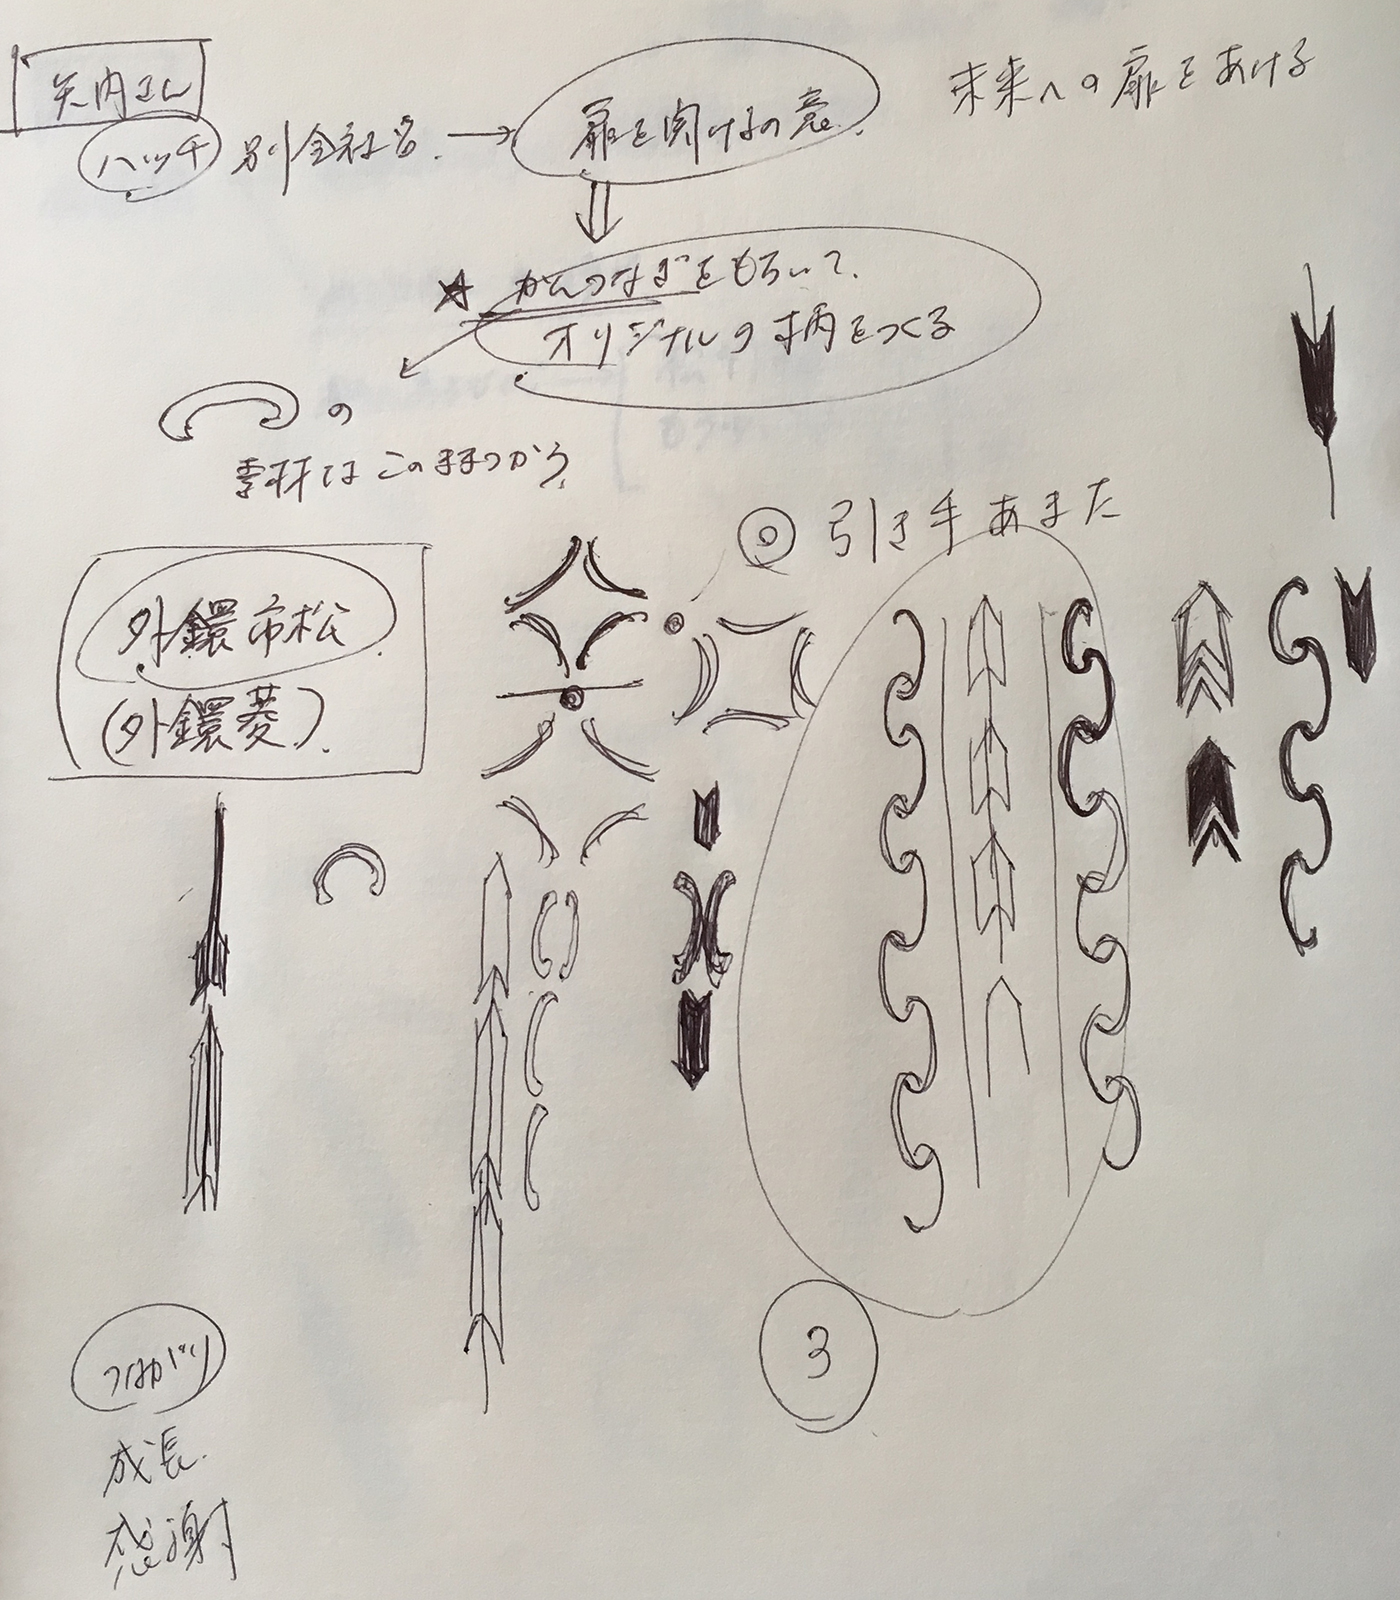 矢内さん
ハッチ 別会社名 → 扉を開けるの意.
未来への扉をあける
★ かんつなぎをもちいて、
オリジナルの柄をつくる
の
素材はこのままつかう
◎ 引き手あまた
外鐶市松
(外鐶菱)
3
つながり
成長
感謝